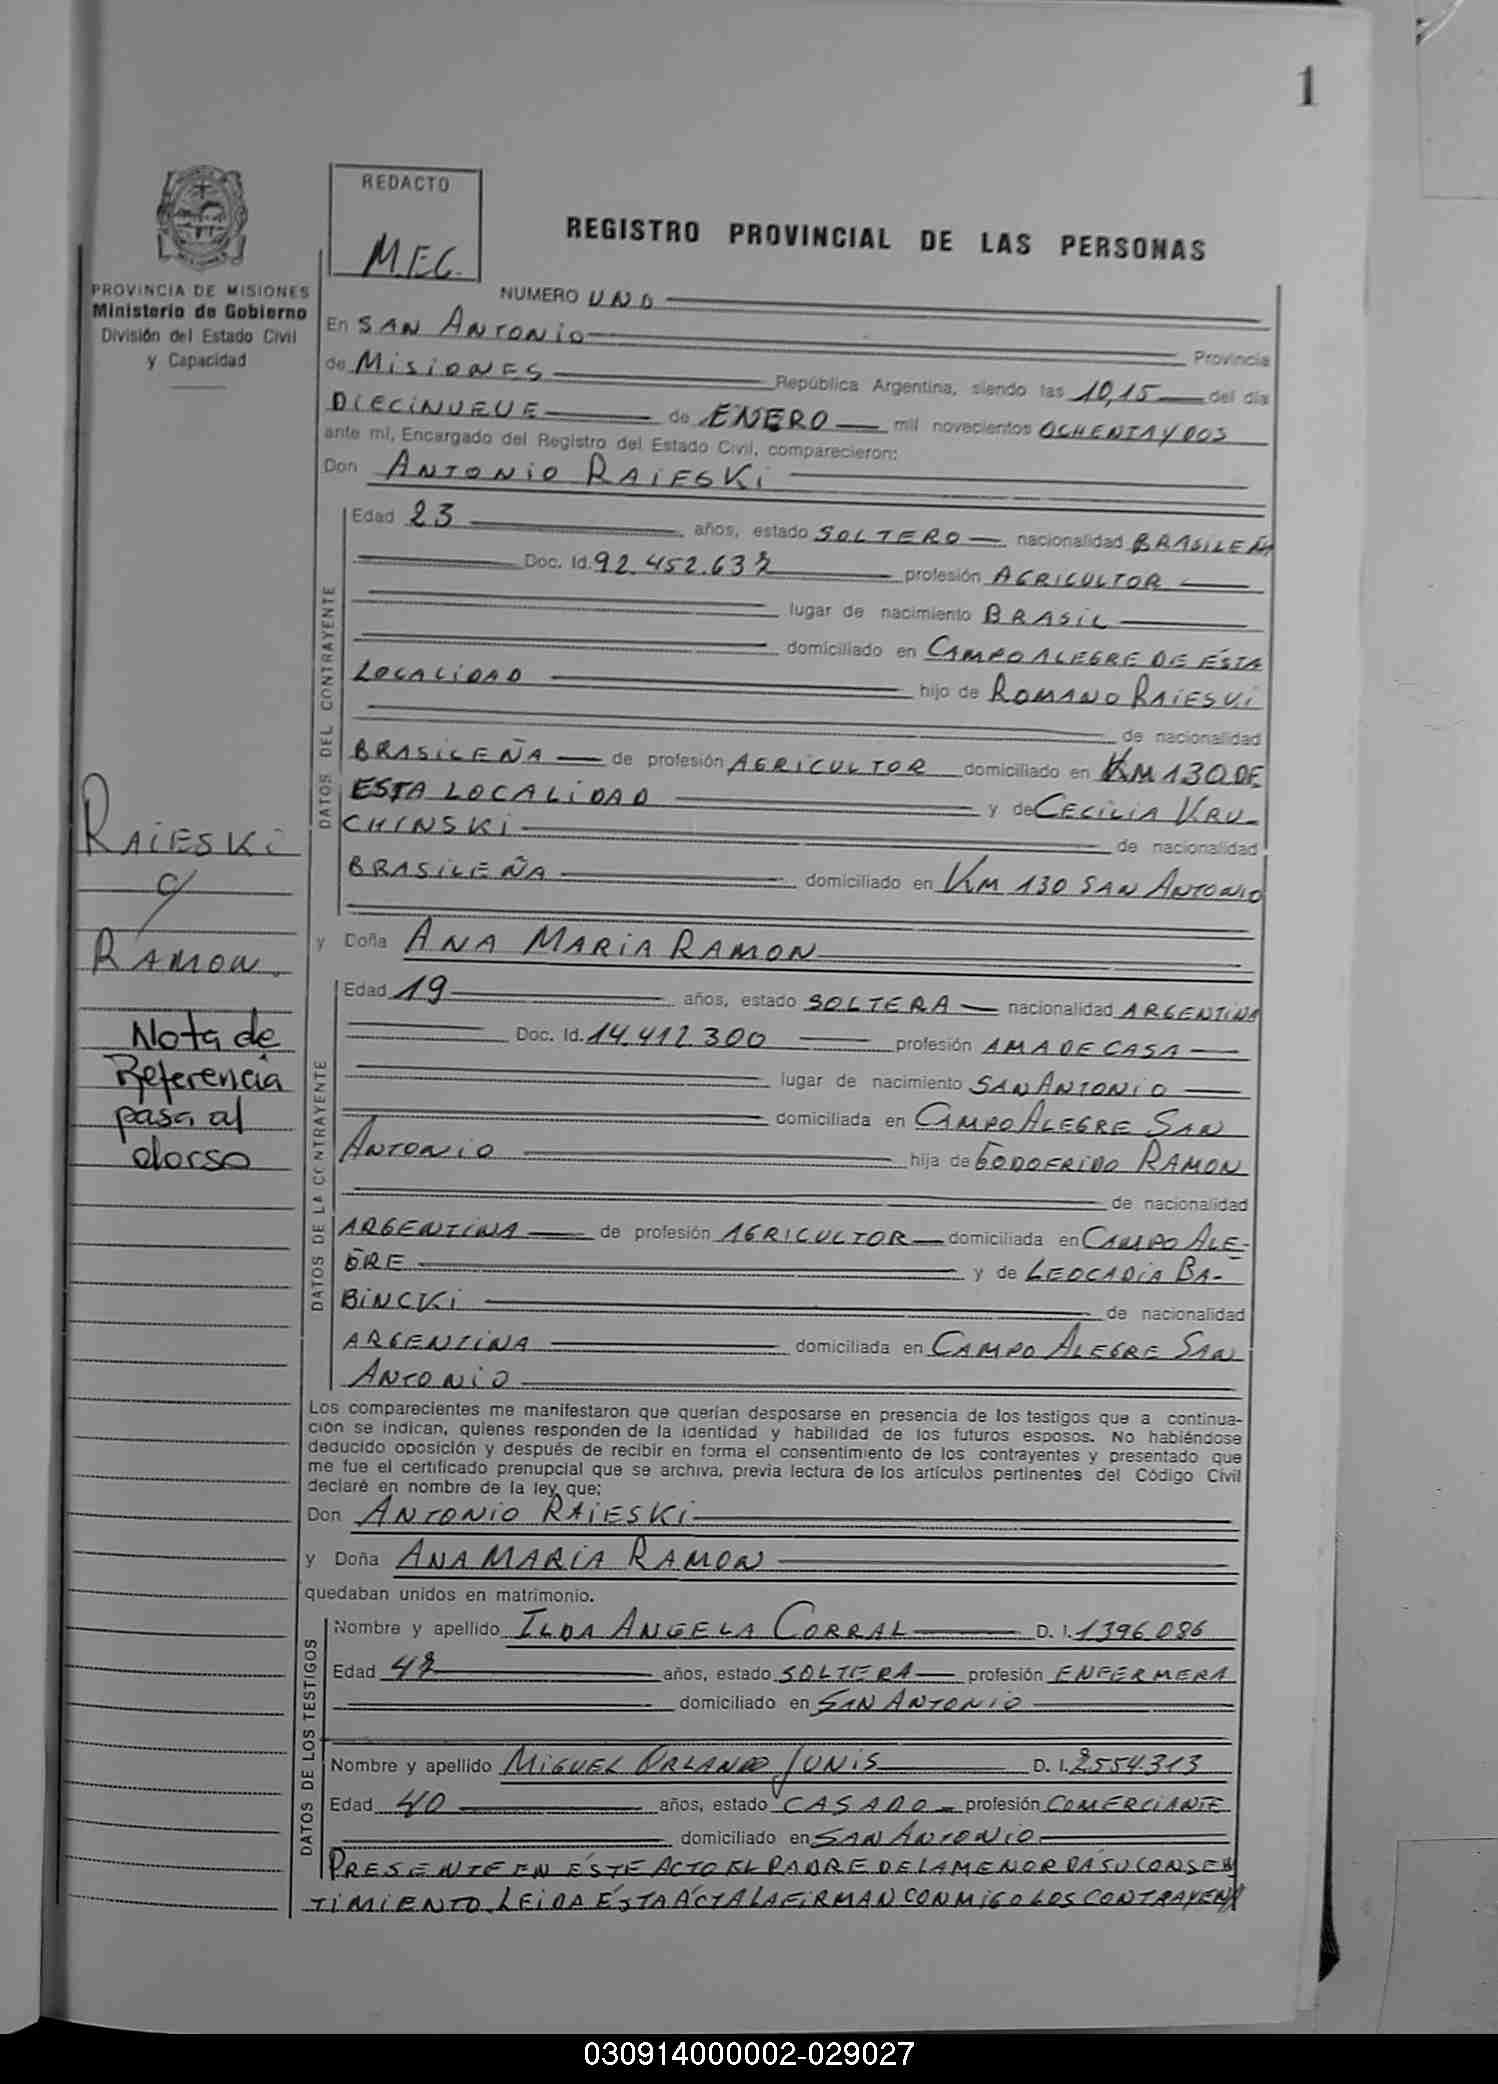 1
REDACTO
M.E.G.
REGISTRO PROVINCIAL DE LAS PERSONAS
PROVINCIA DE MISIONES
Ministerio de Gobierno
División del Estado Civil
y Capacidad
NUMERO UNO
En SAN ANTONIO Provincia
de MISIONES República Argentina, siendo las 10,15 del día
DIECINUEVE de ENERO mil novecientos OCHENTA Y DOS
ante mí, Encargado del Registro del Estado Civil, comparecieron:
Don ANTONIO RAIESKI
DATOS DEL CONTRAYENTE
Edad 23 años, estado SOLTERO nacionalidad BRASILEÑA
Doc. Id. 92.452.632 profesión AGRICULTOR
lugar de nacimiento BRASIL
domiciliado en CAMPO ALEGRE DE ÉSTA
LOCALIDAD hijo de ROMANO RAIESKI
de nacionalidad
BRASILEÑA de profesión AGRICULTOR domiciliado en KM 130 DE
ESTA LOCALIDAD y de CECILIA KRU-
CHINSKI de nacionalidad
BRASILEÑA domiciliado en KM 130 SAN ANTONIO
RAIESKI
c/
RAMON.
Nota de
Referencia
pasa al
dorso
y Doña ANA MARIA RAMON
DATOS DE LA CONTRAYENTE
Edad 19 años, estado SOLTERA nacionalidad ARGENTINA
Doc. Id. 14.412.300 profesión AMA DE CASA
lugar de nacimiento SAN ANTONIO
domiciliada en CAMPO ALEGRE SAN
ANTONIO hija de GODOFRIDO RAMON
de nacionalidad
ARGENTINA de profesión AGRICULTOR domiciliada en CAMPO ALE-
GRE y de LEOCADIA BA-
BINCKI de nacionalidad
ARGENTINA domiciliada en CAMPO ALEGRE SAN
ANTONIO
Los comparecientes me manifestaron que querían desposarse en presencia de los testigos que a continua-
ción se indican, quienes responden de la identidad y habilidad de los futuros esposos. No habiéndose
deducido oposición y después de recibir en forma el consentimiento de los contrayentes y presentado que
me fue el certificado prenupcial que se archiva, previa lectura de los artículos pertinentes del Código Civil
declaré en nombre de la ley que:
Don ANTONIO RAIESKI
y Doña ANA MARIA RAMON
quedaban unidos en matrimonio.
DATOS DE LOS TESTIGOS
Nombre y apellido ILDA ANGELA CORRAL D. I. 1396.086
Edad 42 años, estado SOLTERA profesión ENFERMERA
domiciliado en SAN ANTONIO
Nombre y apellido MIGUEL ORLANDO JUNIS D. I. 2554.313
Edad 40 años, estado CASADO profesión COMERCIANTE
domiciliado en SAN ANTONIO
PRESENTE EN ÉSTE ACTO EL PADRE DE LA MENOR DA SU CONSEN
TIMIENTO. LEIDA ÉSTA ACTA LA FIRMAN CONMIGO LOS CONTRAYEN
030914000002-029027